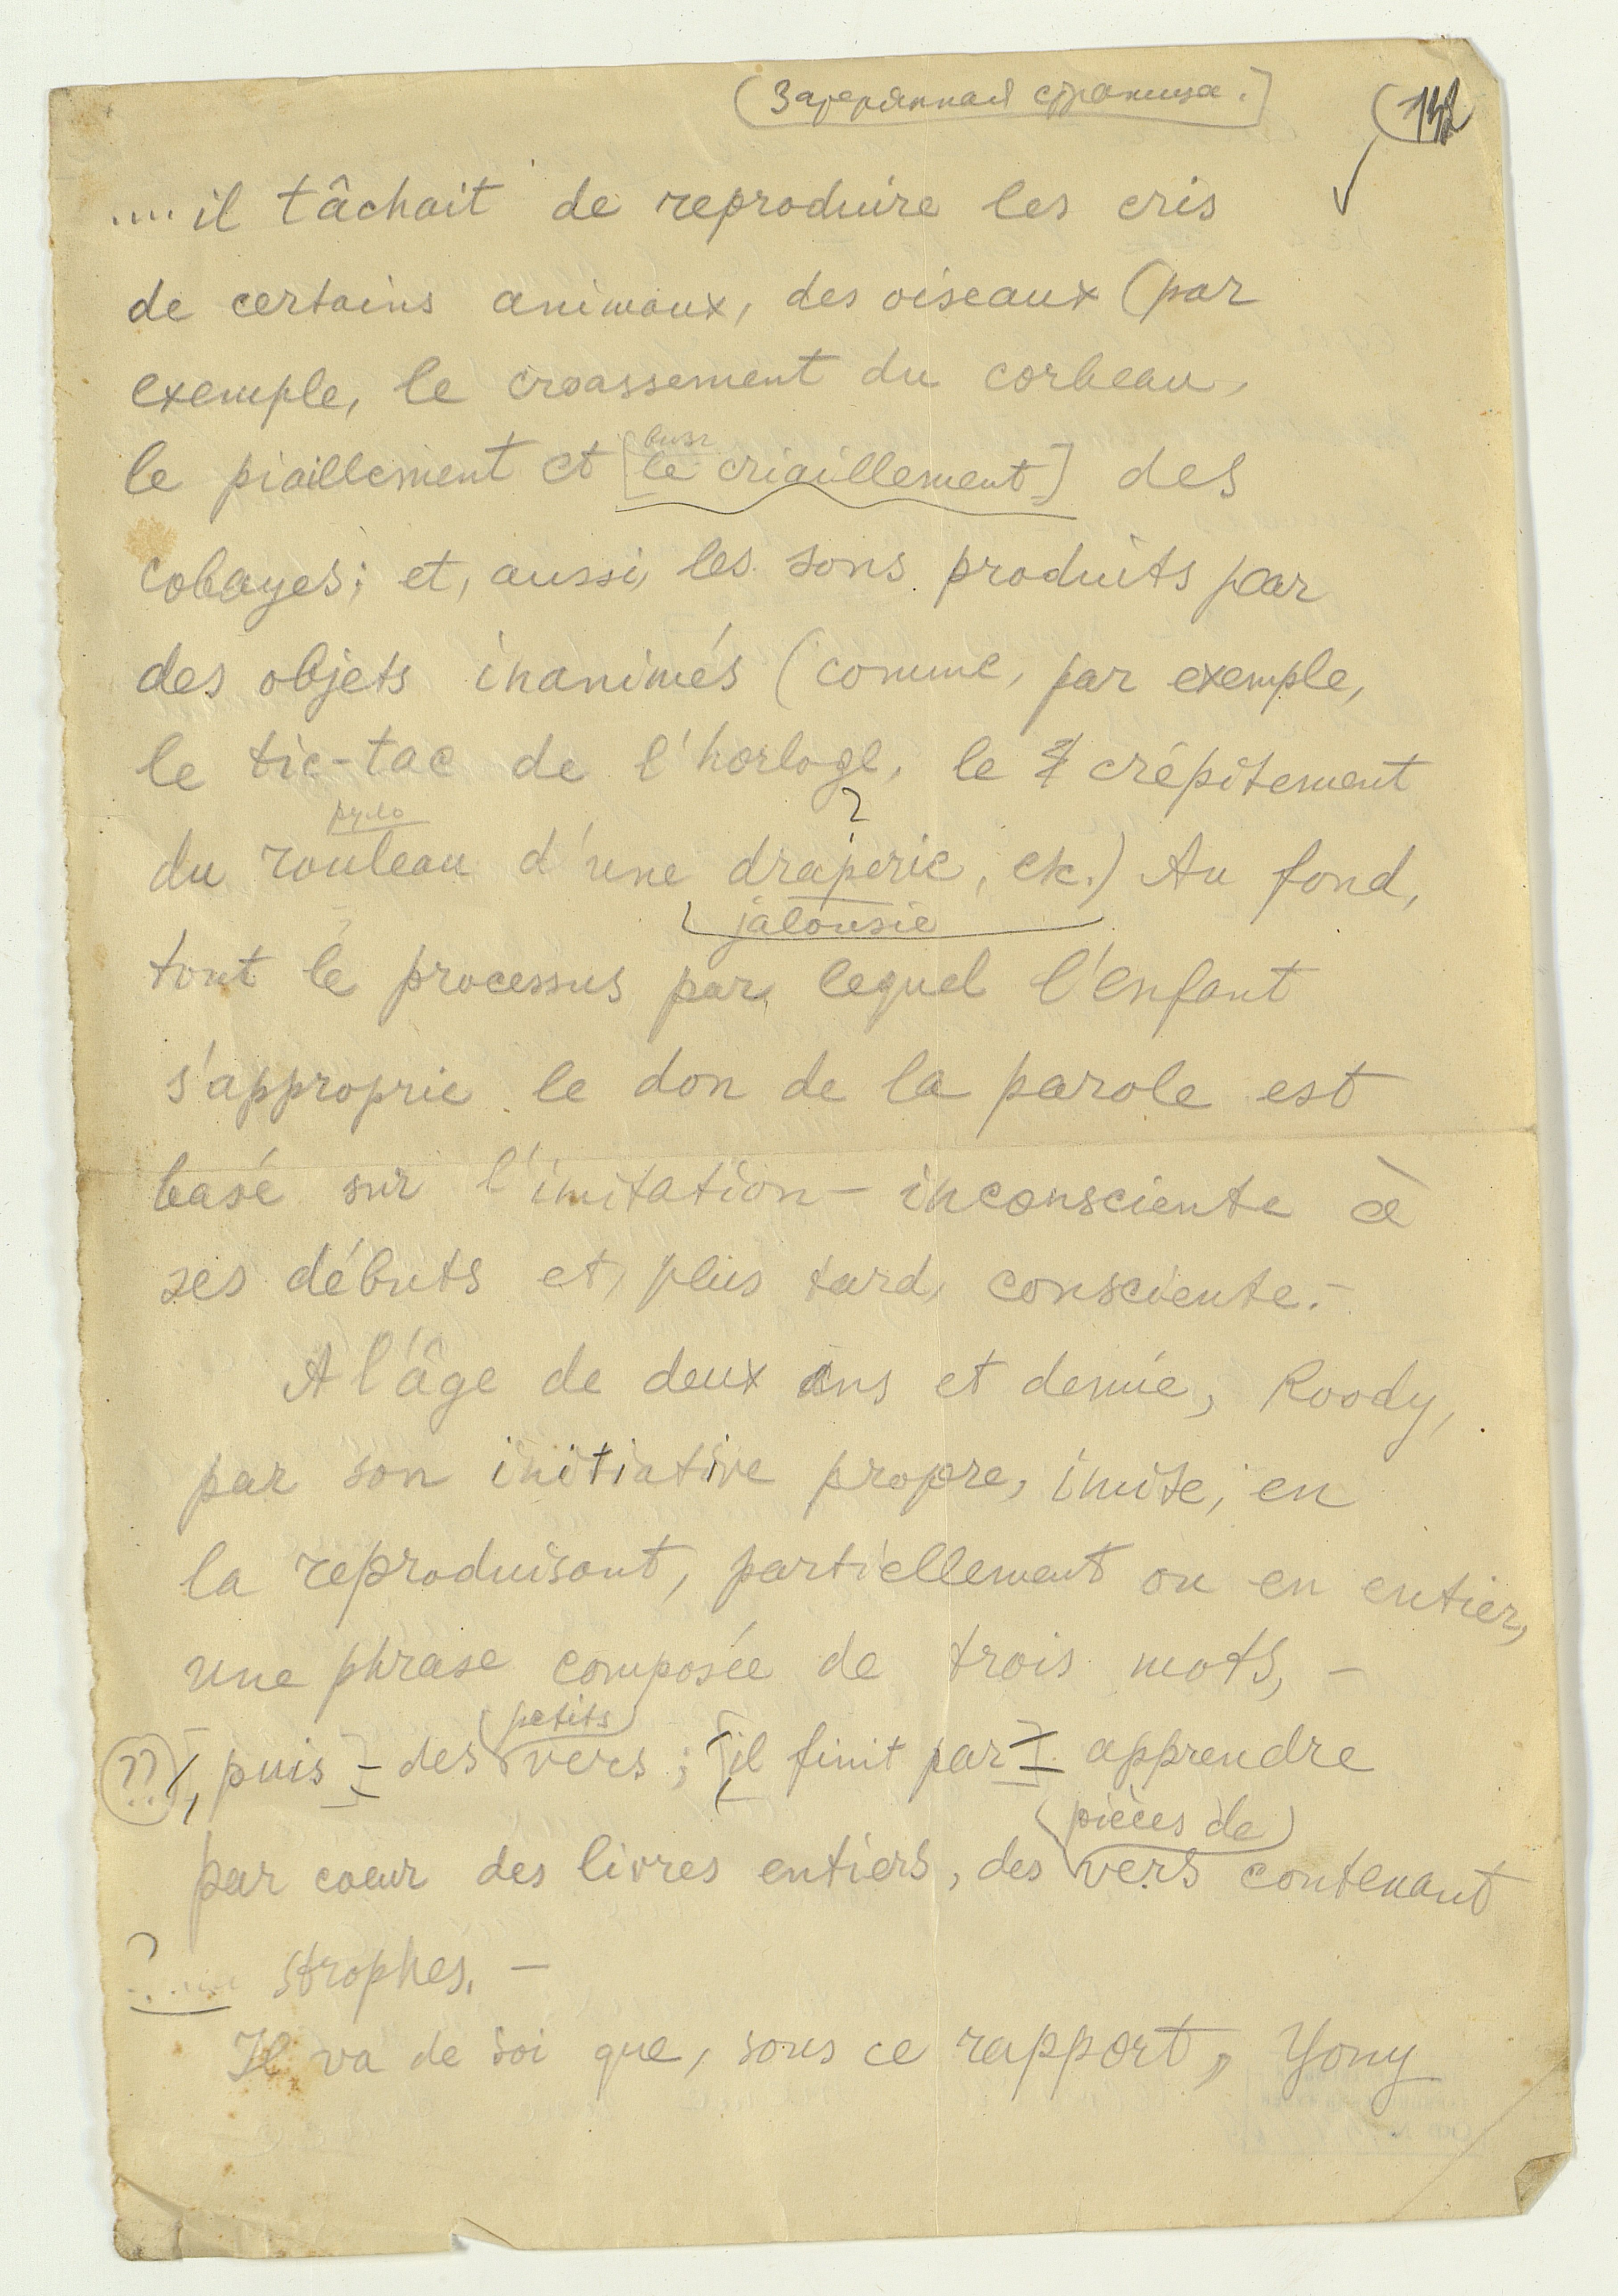 (Затерянная страница.)
(132
.... il tâchait de reproduire les cris
de certains animaux, des oiseaux (par
exemple, le croassement du corbeau,
le piaillement et [le criaillement] des
cobayes; et, aussi, les sons produits par
des objets inanimés (comme, par exemple,
le tic-tac de l'horloge, le crépitement
?
du rouleau d'une draperie, etc.) Au fond,
jalousie
tout le processus par lequel l'enfant
s'approprie le don de la parole est
basé sur l'imitation – inconsciente à
ses débuts et, plus tard, consciente. –
A l'âge de deux ans et demie, Roody,
par son initiative propre, imite, en
la reproduisant, partiellement ou en entier,
une phrase composée de trois mots, –
(petits)
(??) [, puis] – des vers; [il finit par] apprendre
(pièces de)
par coeur des livres entiers, des vers contenant
? strophes. –
Il va de soi que, sous ce rapport, Yony